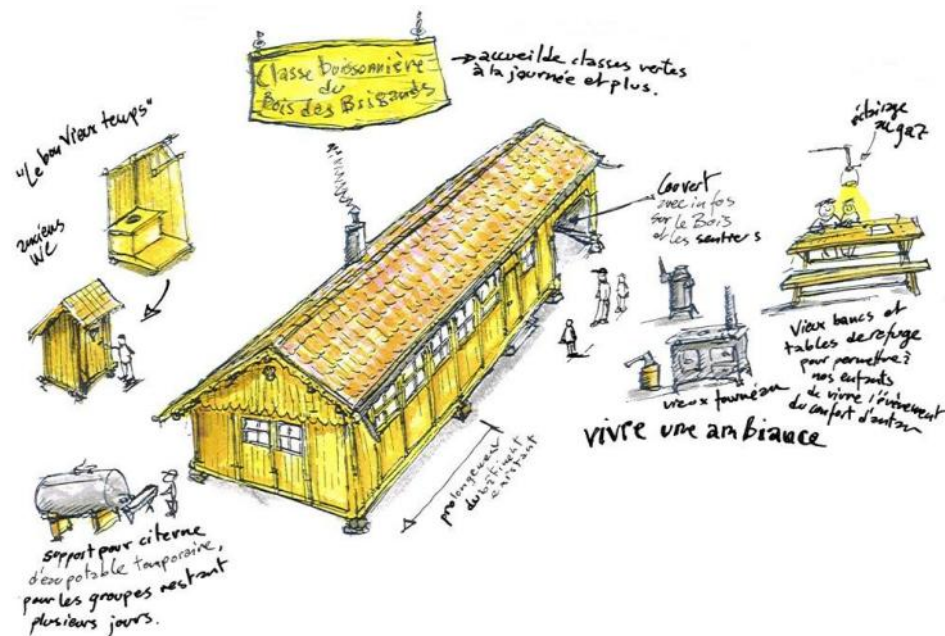 Classe buissonnière
du
Bois des Brigands
→ accueil de classes vertes
à la journée et plus.
"Le bon vieux temps"
anciens
WC
éclairage
au gaz
Couvert
avec infos
sur le Bois
et les sentiers
vieux bancs et
tables de refuge
pour permettre à
nos enfants
de vivre l'évènement
du confort d'antan
vieux fourneau
vivre une ambiance
prolongement
du bâtiment
existant
support pour citerne
d'eau potable temporaire,
pour les groupes restant
plusieurs jours.